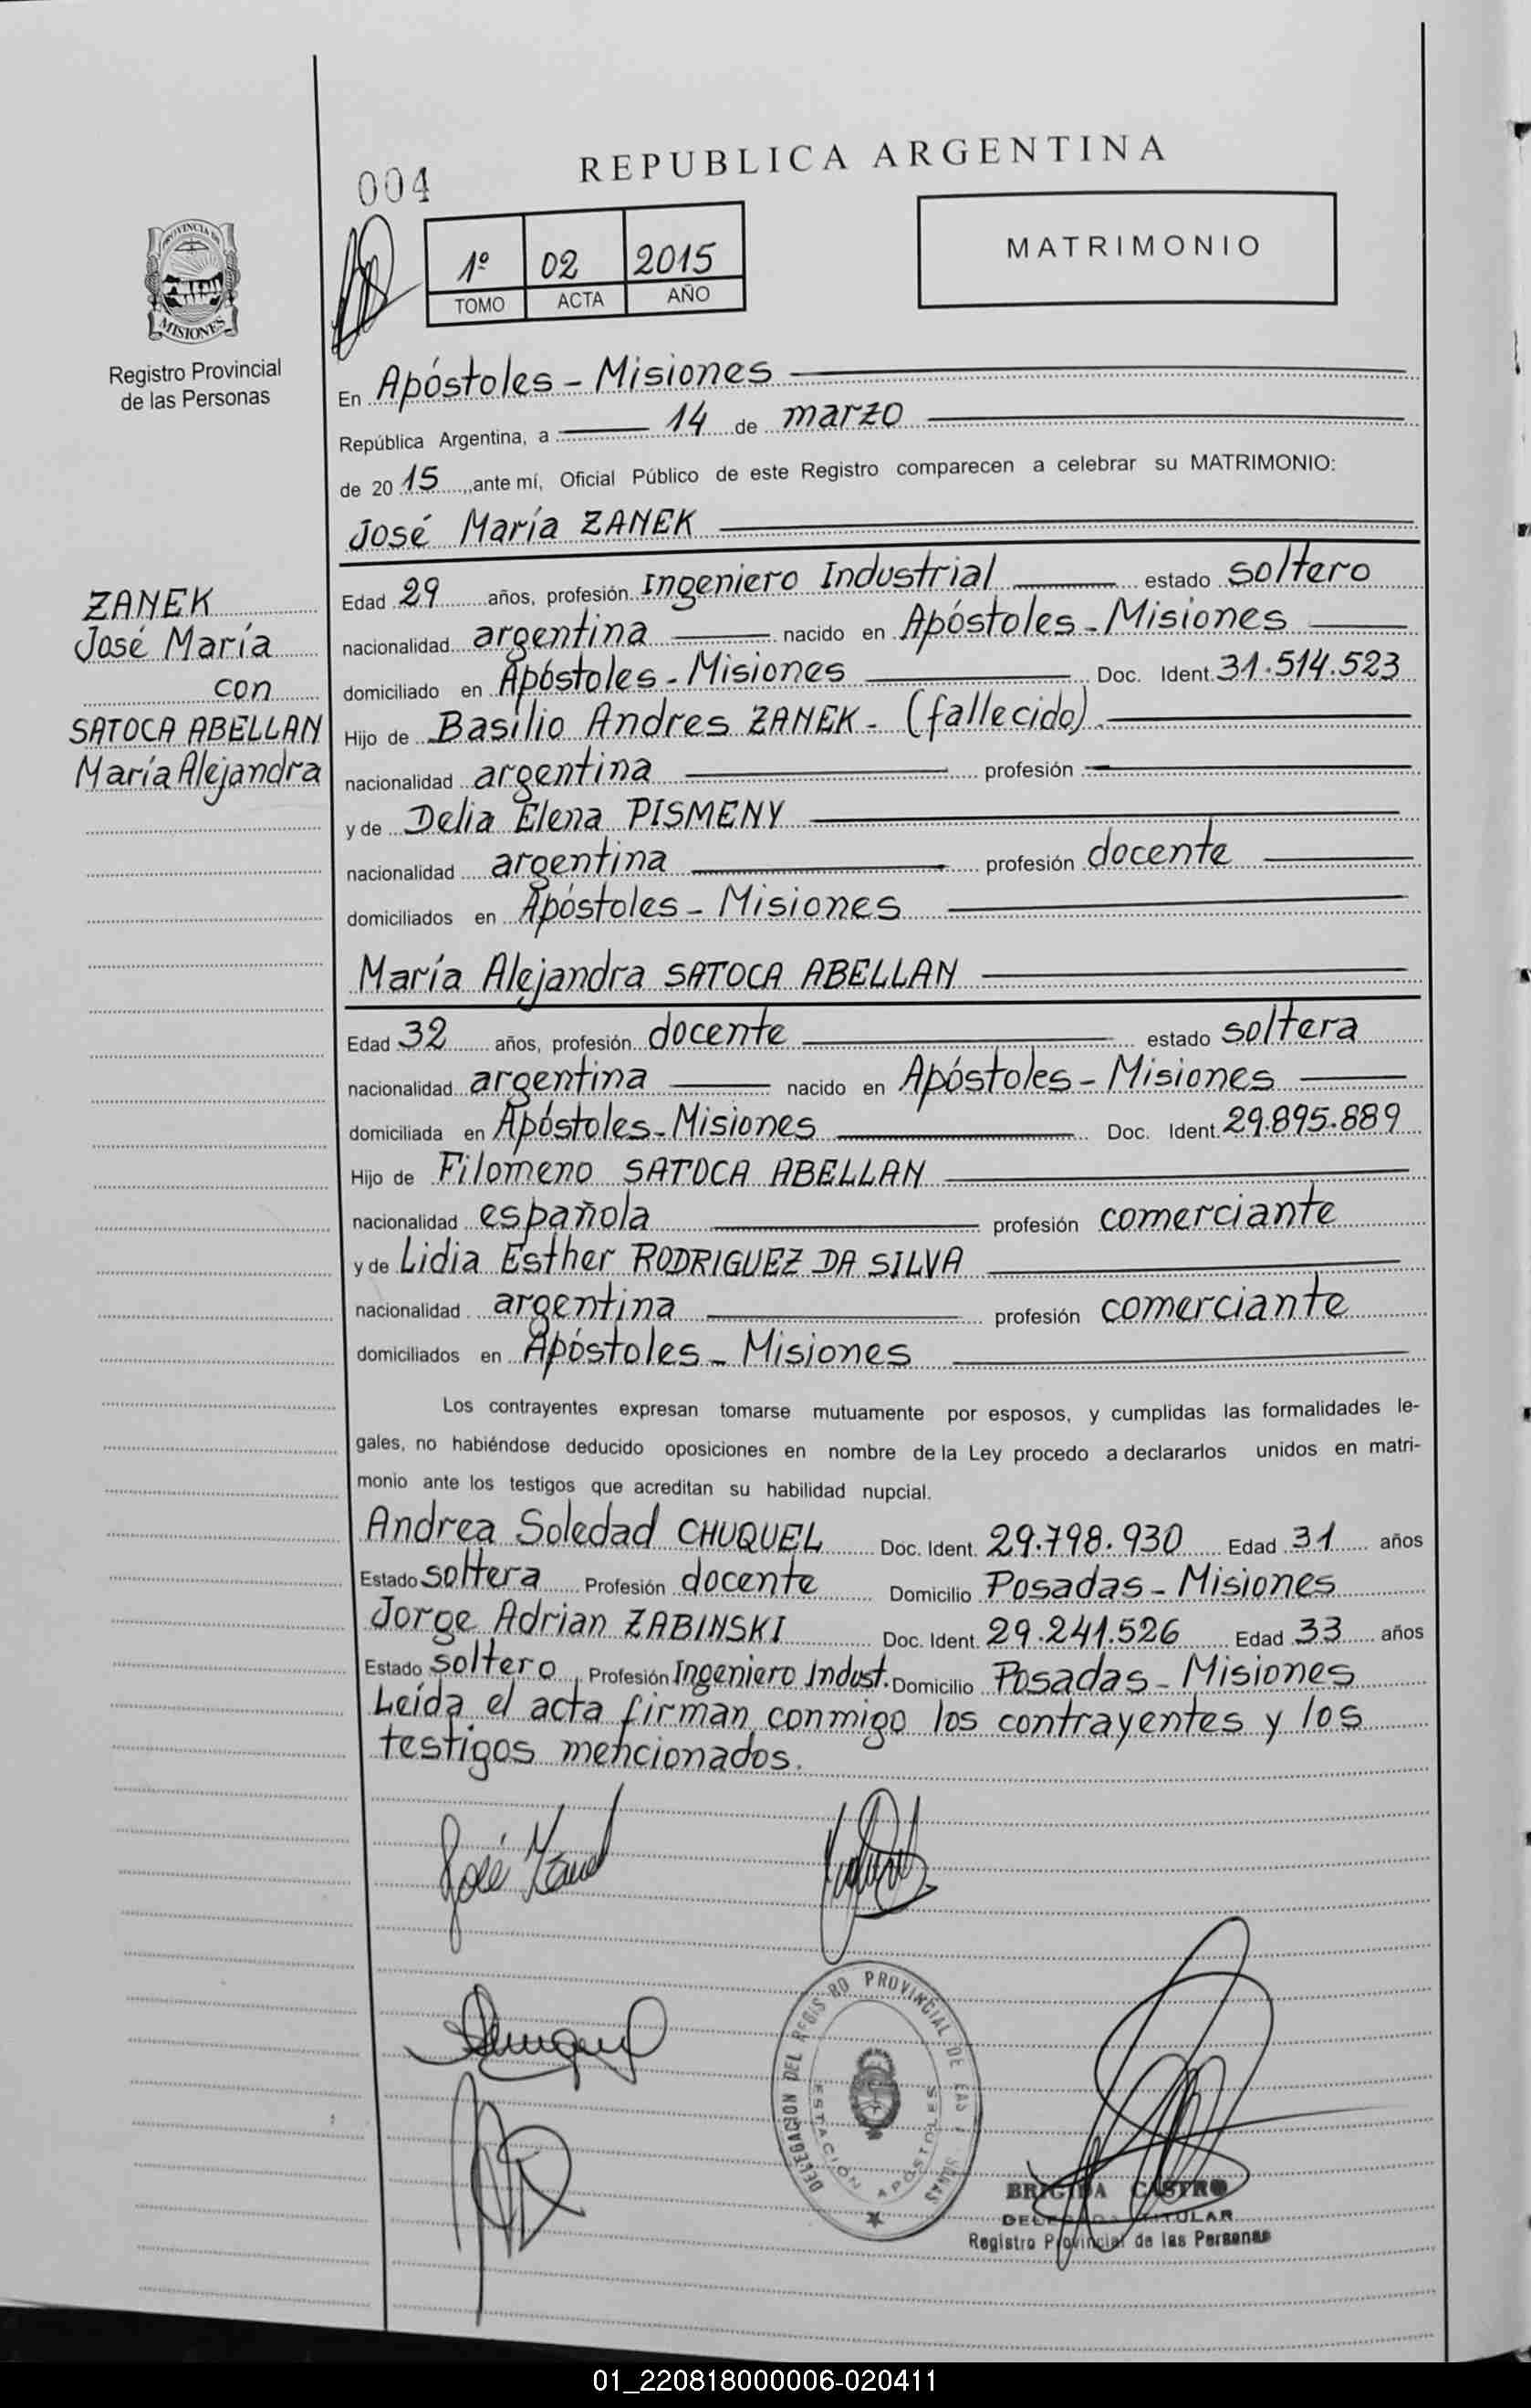 REPUBLICA ARGENTINA
004
1º 02 2015
TOMO ACTA AÑO
MATRIMONIO
PROVINCIA DE
MISIONES
Registro Provincial
de las Personas
ZANEK
José María
con
SATOCA ABELLAN
María Alejandra
En Apóstoles - Misiones
República Argentina, a 14 de marzo
de 2015, ante mí, Oficial Público de este Registro comparecen a celebrar su MATRIMONIO:
José María ZANEK
Edad 29 años, profesión Ingeniero Industrial estado soltero
nacionalidad argentina nacido en Apóstoles - Misiones
domiciliado en Apóstoles - Misiones Doc. Ident. 31.514.523
Hijo de Basilio Andres ZANEK - (fallecido)
nacionalidad argentina profesión
y de Delia Elena PISMENY
nacionalidad argentina profesión docente
domiciliados en Apóstoles - Misiones
María Alejandra SATOCA ABELLAN
Edad 32 años, profesión docente estado soltera
nacionalidad argentina nacido en Apóstoles - Misiones
domiciliada en Apóstoles - Misiones Doc. Ident. 29.895.889
Hijo de Filomeno SATOCA ABELLAN
nacionalidad española profesión comerciante
y de Lidia Esther RODRIGUEZ DA SILVA
nacionalidad argentina profesión comerciante
domiciliados en Apóstoles - Misiones
Los contrayentes expresan tomarse mutuamente por esposos, y cumplidas las formalidades le-
gales, no habiéndose deducido oposiciones en nombre de la Ley procedo a declararlos unidos en matri-
monio ante los testigos que acreditan su habilidad nupcial.
Andrea Soledad CHUQUEL Doc. Ident. 29.798.930 Edad 31 años
Estado soltera Profesión docente Domicilio Posadas - Misiones
Jorge Adrian ZABINSKI Doc. Ident. 29.241.526 Edad 33 años
Estado soltero Profesión Ingeniero Indust. Domicilio Posadas - Misiones
Leída el acta firman conmigo los contrayentes y los
testigos mencionados.
José Zanek
DELEGACION DEL REGIS RO PROVINCIAL DE LAS
ESTACIÓN APOSTOLES
BRIGIDA CASTRO
DELEGADA TITULAR
Registro Provincial de las Personas
01_220818000006-020411